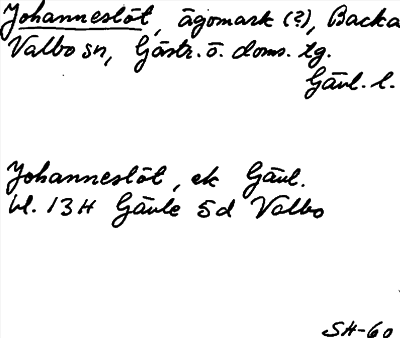 Johanneslöt, ägomark (?), Backa
Valbo sn, Gästr. ö. doms. tg.
Gävl. l.
Johanneslöt, ek Gävl.
bl. 13H Gävle 5d Valbo
SH-60